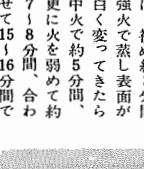 強火で蒸し表面が
白く変ってきたら
中火で約5分間、
更に火を弱めて約
7〜8分間、合わ
せて15〜16分間で